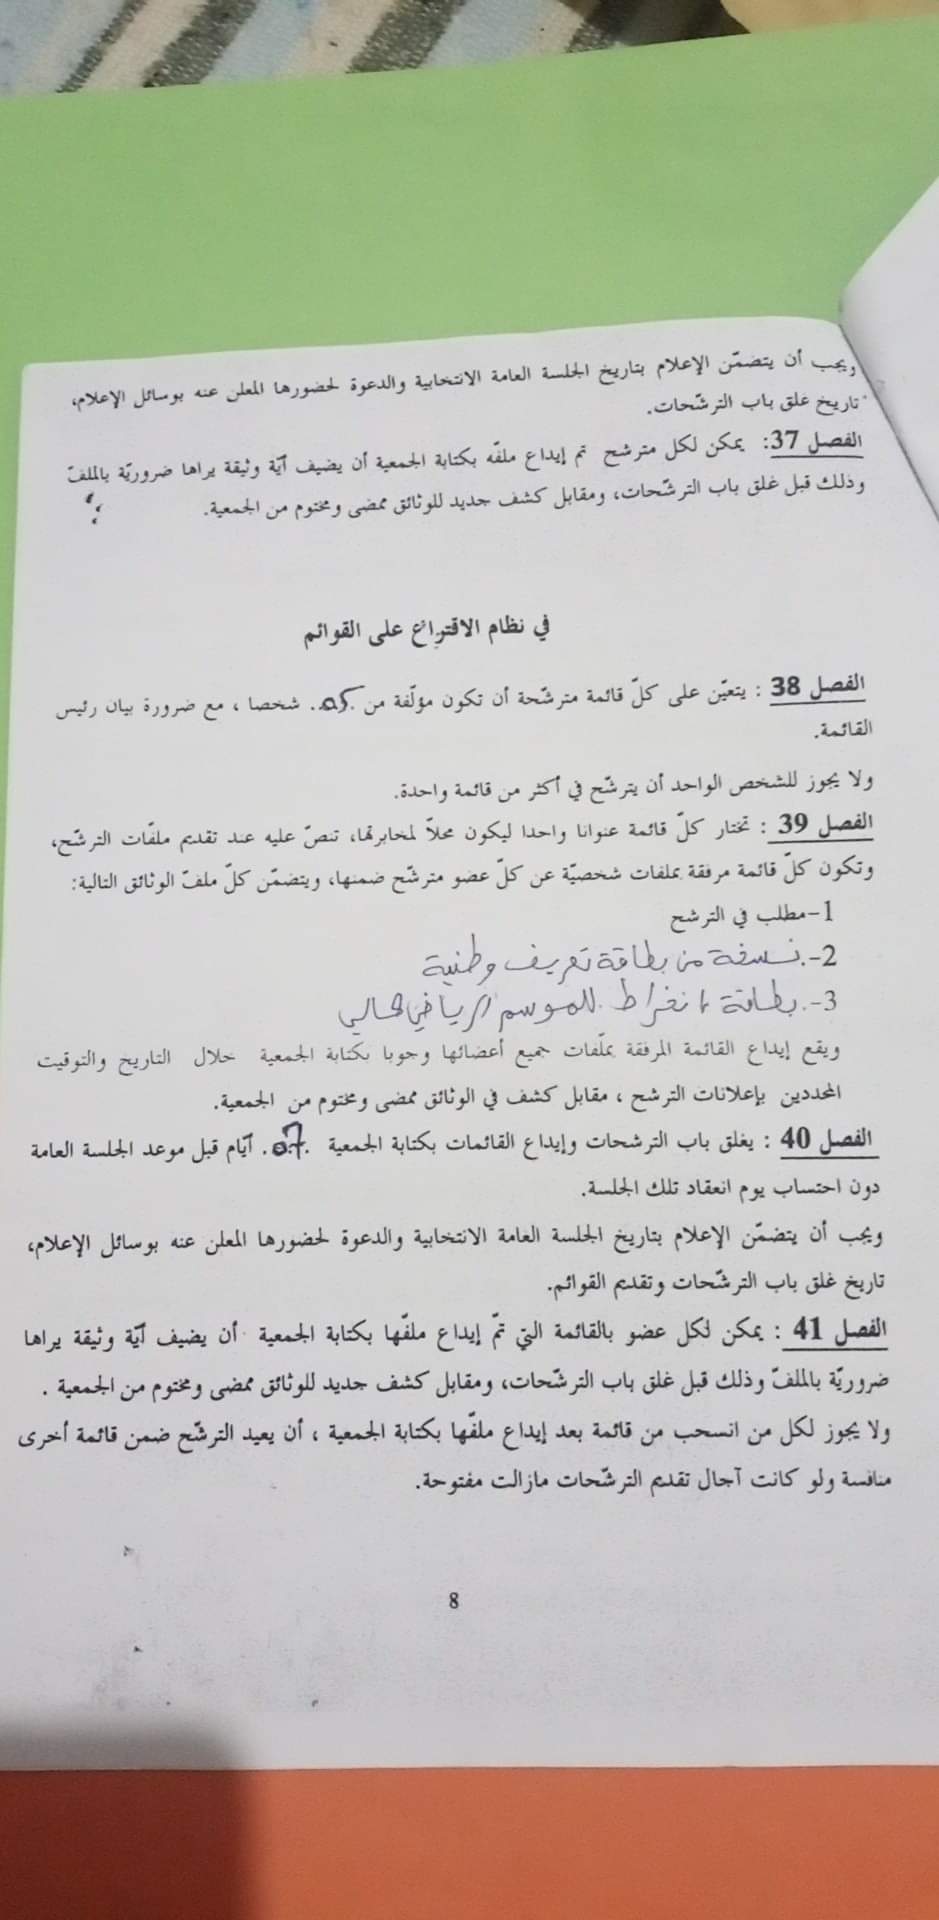 ويجب أن يتضمّن الإعلام بتاريخ الجلسة العامة الانتخابية والدعوة لحضورها المعلن عنه بوسائل الإعلام،
تاريخ غلق باب الترشّحات.
الفصل 37: يمكن لكل مترشح تم إيداع ملفّه بكتابة الجمعية أن يضيف أيّة وثيقة يراها ضروريّة بالملفّ
وذلك قبل غلق باب الترشّحات، ومقابل كشف جديد للوثائق ممضى ومختوم من الجمعية.
في نظام الاقتراع على القوائم
الفصل 38 : يتعيّن على كلّ قائمة مترشّحة أن تكون مؤلّفة من .05. شخصا ، مع ضرورة بيان رئيس
القائمة.
ولا يجوز للشخص الواحد أن يترشّح في أكثر من قائمة واحدة.
الفصل 39 : تختار كلّ قائمة عنوانا واحدا ليكون محلاّ لمخابرتها، تنصّ عليه عند تقديم ملفّات الترشّح،
وتكون كلّ قائمة مرفقة بملفات شخصيّة عن كلّ عضو مترشّح ضمنها، ويتضمّن كلّ ملفّ الوثائق التالية:
1-مطلب في الترشح
2-.نسخة من بطاقة تعريف وطنية
3-.بطاقة انخراط للموسم الرياضي الحالي
ويقع إيداع القائمة المرفقة بملّفات جميع أعضائها وجوبا بكتابة الجمعية خلال التاريخ والتوقيت
المحددين بإعلانات الترشح ، مقابل كشف في الوثائق ممضى ومختوم من الجمعية.
الفصل 40 : يغلق باب الترشحات وإيداع القائمات بكتابة الجمعية .07. أيّام قبل موعد الجلسة العامة
دون احتساب يوم انعقاد تلك الجلسة.
ويجب أن يتضمّن الإعلام بتاريخ الجلسة العامة الانتخابية والدعوة لحضورها المعلن عنه بوسائل الإعلام،
تاريخ غلق باب الترشّحات وتقديم القوائم.
الفصل 41 : يمكن لكل عضو بالقائمة التي تمّ إيداع ملفّها بكتابة الجمعية أن يضيف أيّة وثيقة يراها
ضروريّة بالملفّ وذلك قبل غلق باب الترشّحات، ومقابل كشف جديد للوثائق ممضى ومختوم من الجمعية .
ولا يجوز لكل من انسحب من قائمة بعد إيداع ملفّها بكتابة الجمعية ، أن يعيد الترشّح ضمن قائمة أخرى
منافسة ولو كانت آجال تقديم الترشّحات مازالت مفتوحة.
8